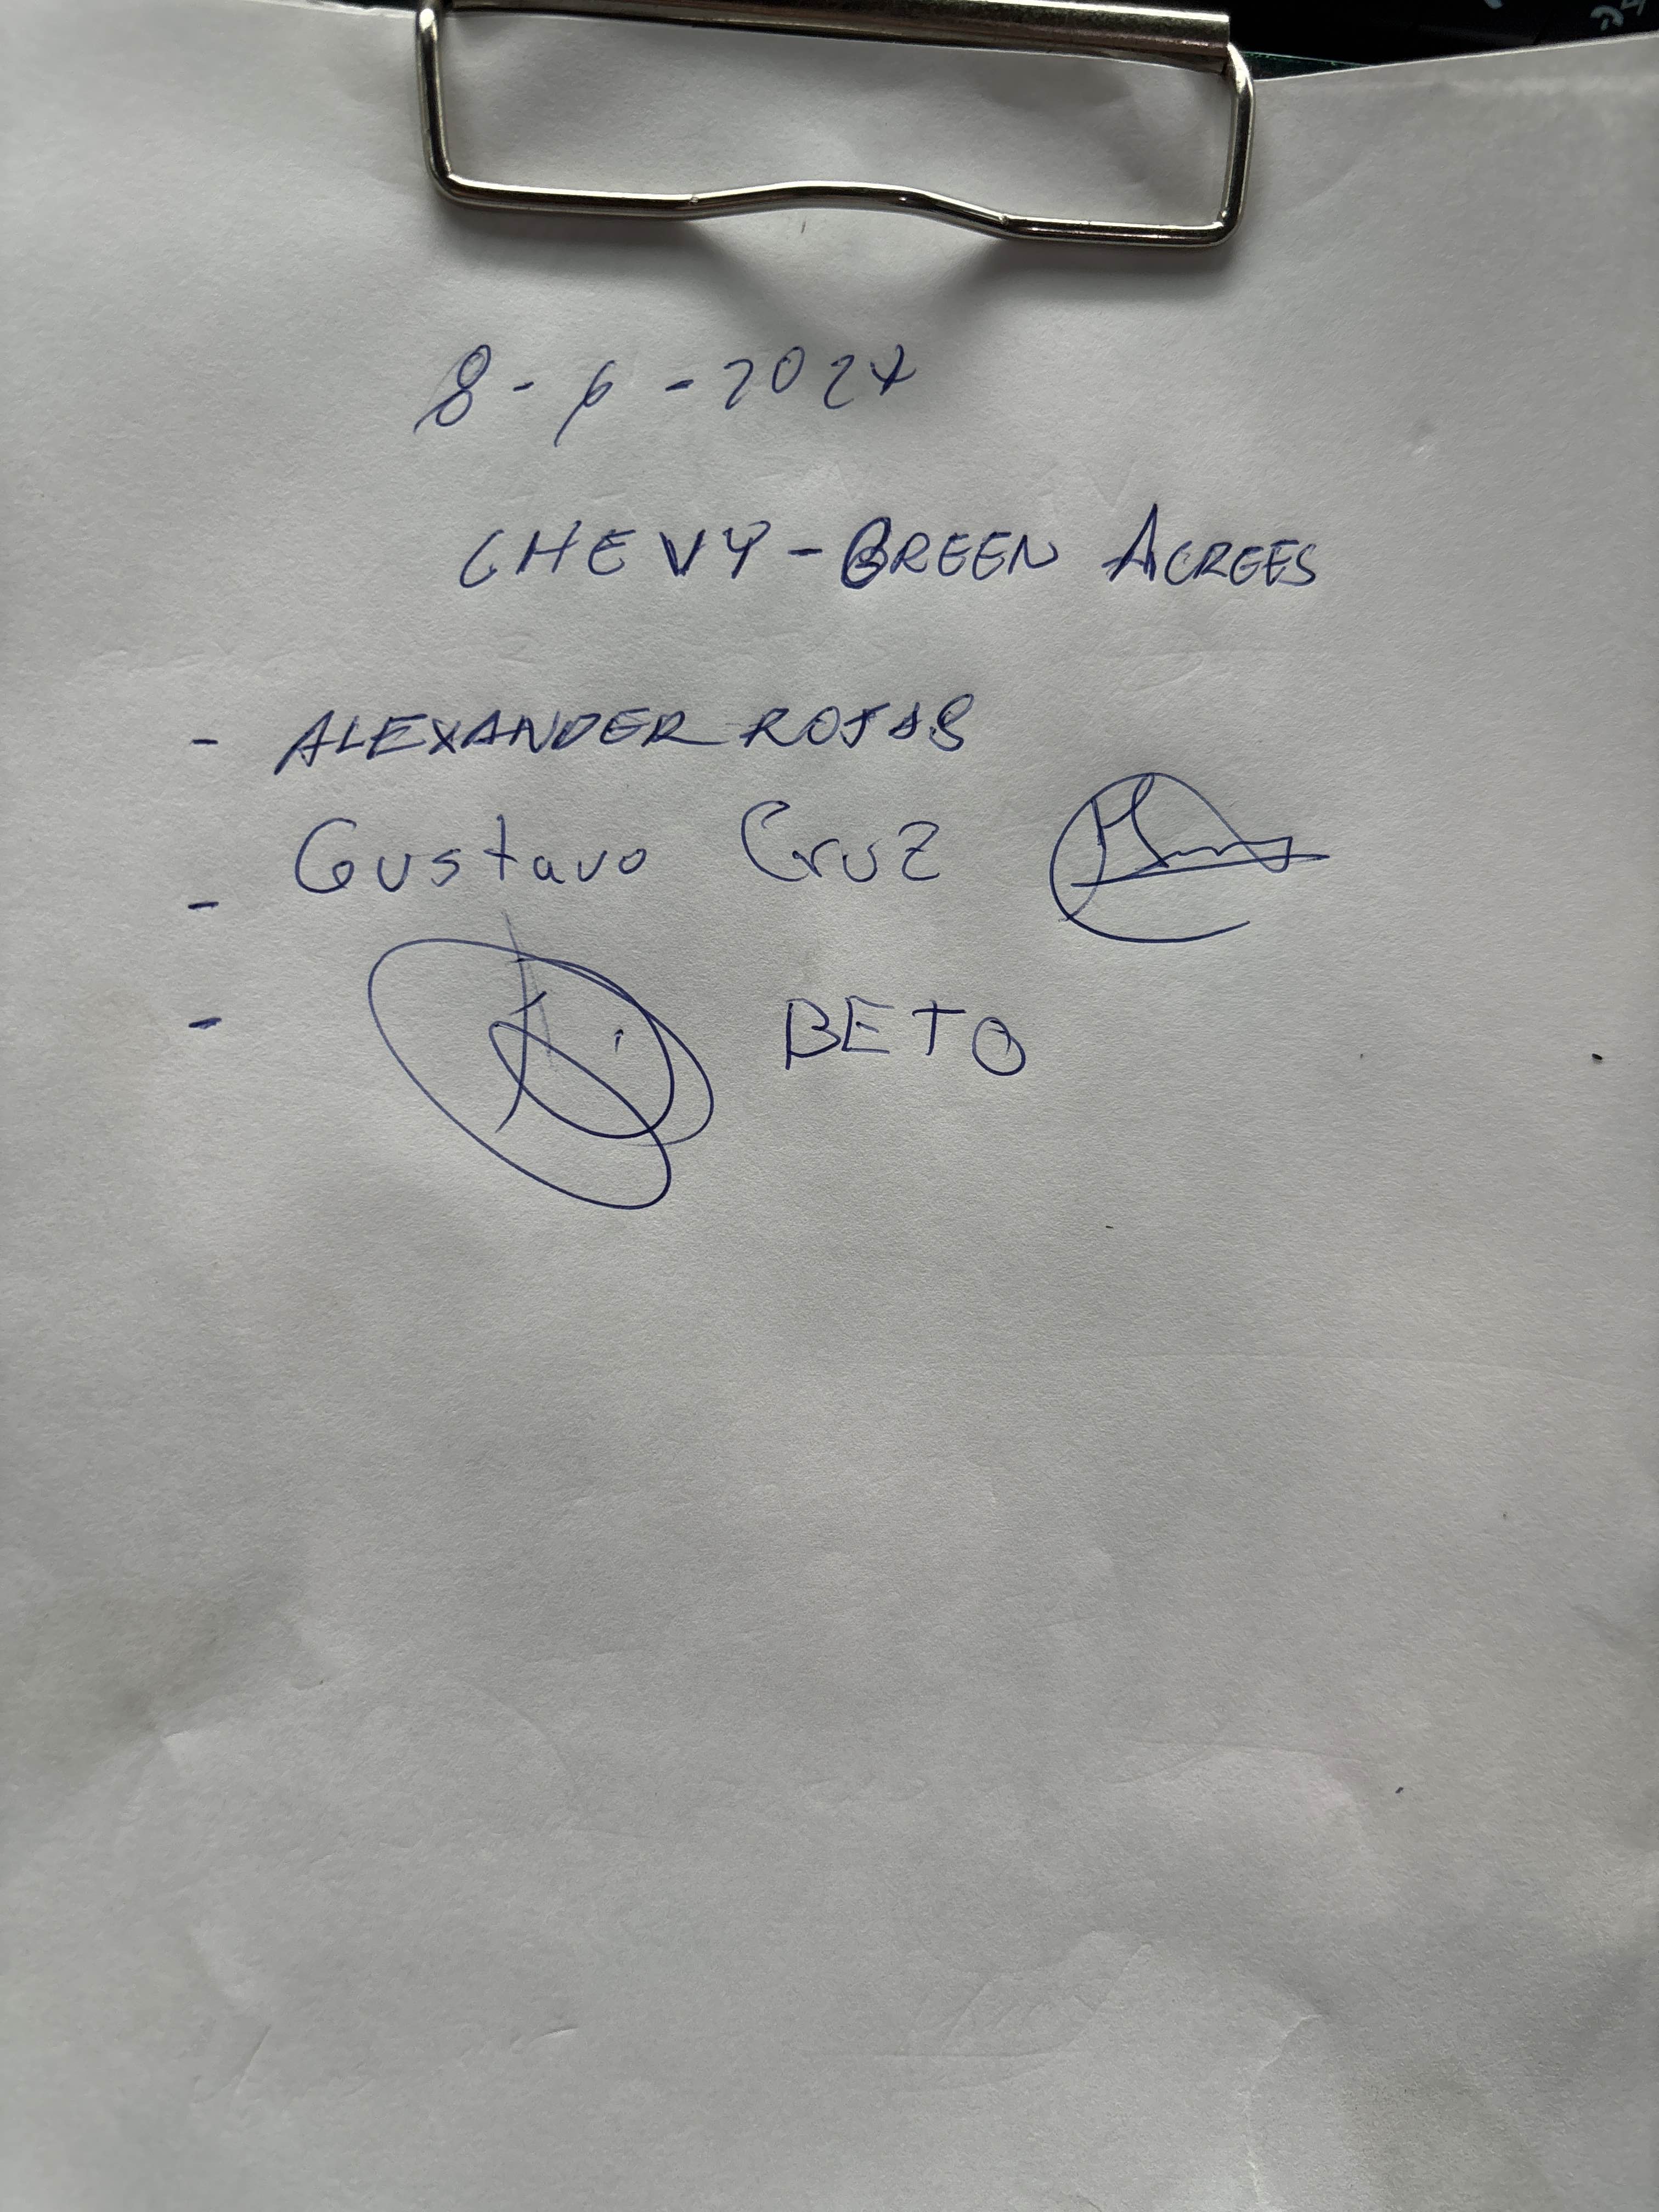 8-6-2024
CHEVY - GREEN ACREES
- ALEXANDER ROJAS
- Gustavo Cruz
- BETO